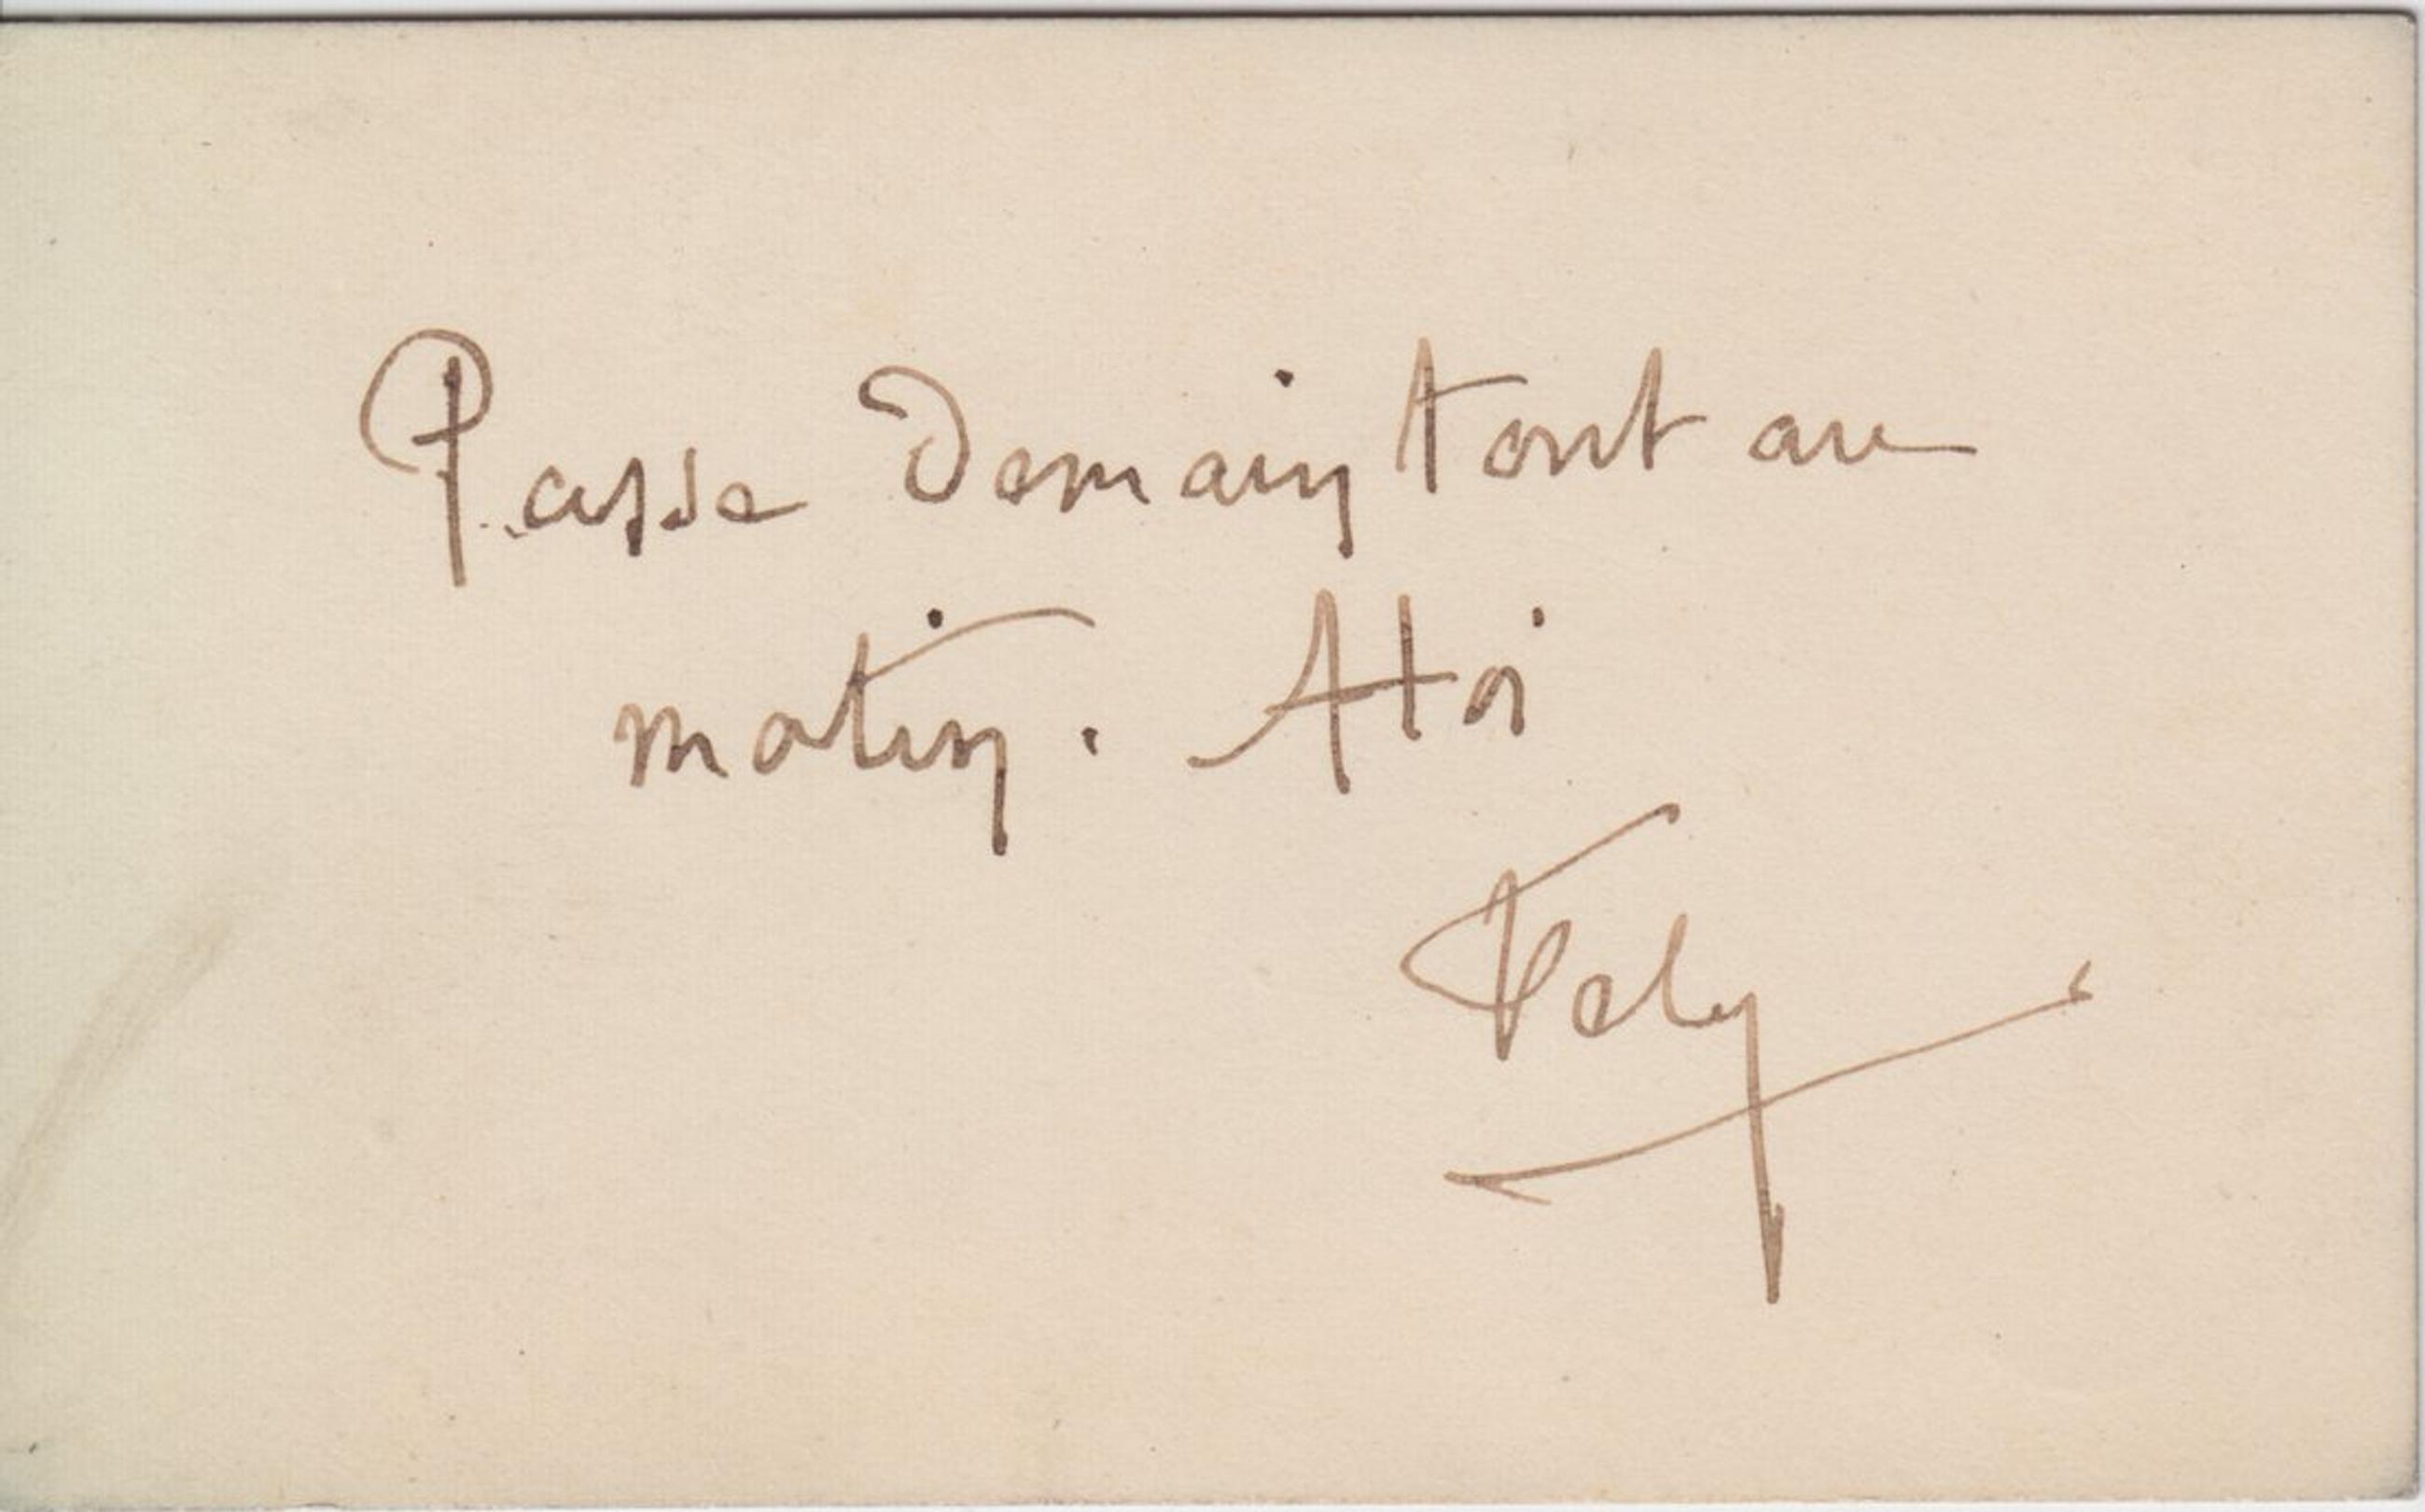 Passe Demain tout au
matin. A toi